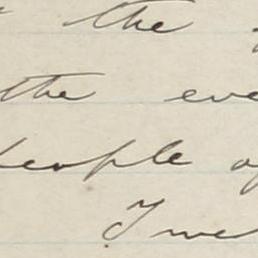 the
the eve
people of
I we